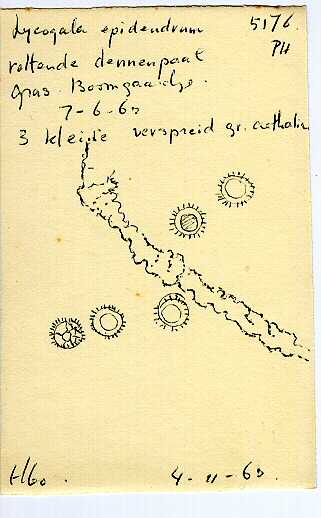 Lycogala epidendrum 5176
rottende dennenpaal PH
gras. Boomgaardje.
7-6-60
3 kleine verspreid gr. aethalia
4-11-60